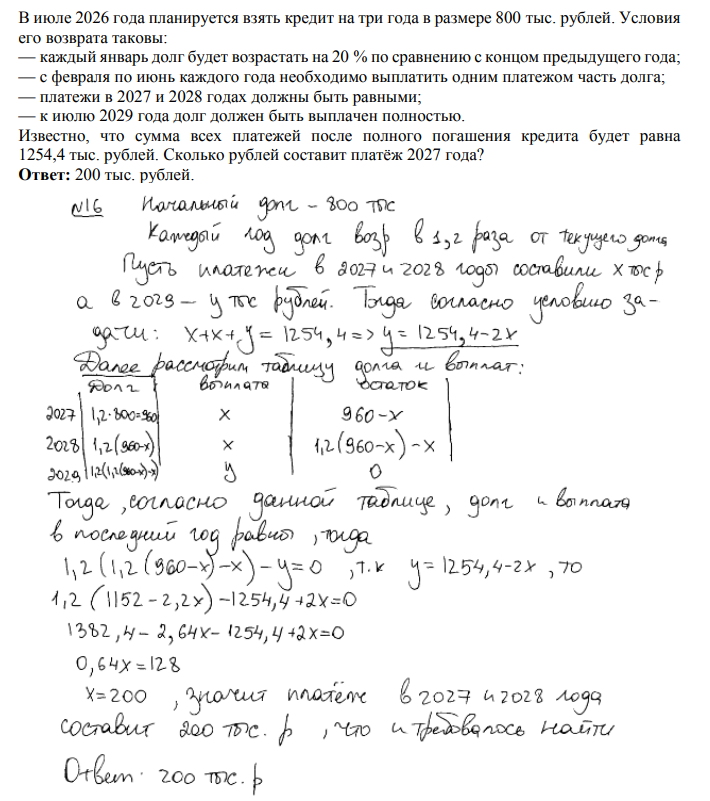 В июле 2026 года планируется взять кредит на три года в размере 800 тыс. рублей. Условия
его возврата таковы:
— каждый январь долг будет возрастать на 20 % по сравнению с концом предыдущего года;
— с февраля по июнь каждого года необходимо выплатить одним платежом часть долга;
— платежи в 2027 и 2028 годах должны быть равными;
— к июлю 2029 года долг должен быть выплачен полностью.
Известно, что сумма всех платежей после полного погашения кредита будет равна
1254,4 тыс. рублей. Сколько рублей составит платёж 2027 года?
Ответ: 200 тыс. рублей.
№16 Начальный долг – 800 тыс
Каждый год долг возр в 1,2 раза от текущего долга
Пусть платежи в 2027 и 2028 годы составили x тыс р
а в 2029 – y тыс рублей. Тогда согласно условию за-
дачи: x+x+y = 1254,4 => y = 1254,4-2x
Далее рассмотрим таблицу долга и выплат:
Долг выплата остаток
2027 1,2·800=960 x 960-x
2028 1,2(960-x) x 1,2(960-x)-x
2029 1,2(1,2(960-x)-x) y 0
Тогда, согласно данной таблице, долг и выплата
в последний год равны, тогда
1,2(1,2(960-x)-x)-y=0 , т.к y=1254,4-2x , то
1,2(1152-2,2x)-1254,4+2x=0
1382,4-2,64x-1254,4+2x=0
0,64x=128
x=200 , значит платёж в 2027 и 2028 года
составит 200 тыс. р , что и требовалось найти
Ответ: 200 тыс. р